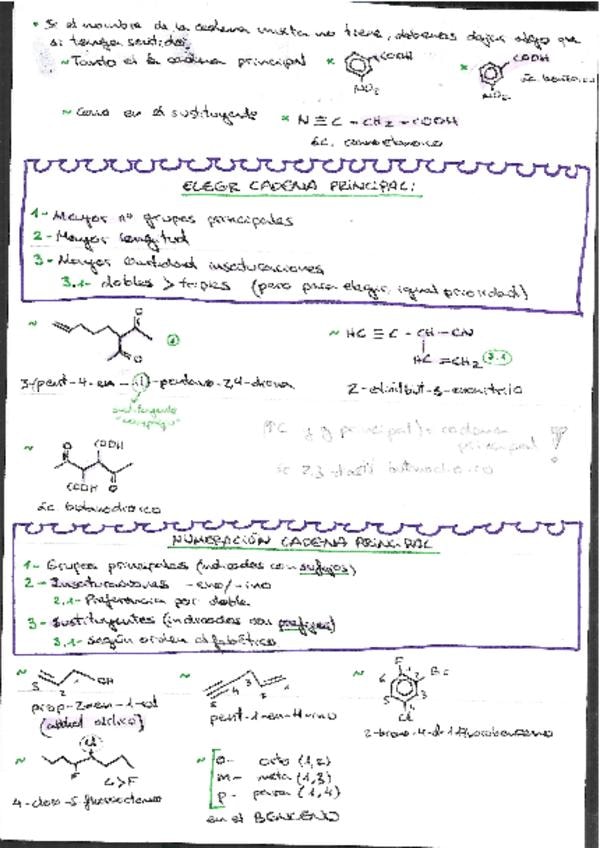 • Si el nombre de la cadena mixta no tiene, debemos dejar algo que
si tenga sentido.
~ Tanto en la cadena principal * COOH NO₂ * COOH NO₂ ác. benzoico
~ Como en el sustituyente * N≡C-CH₂-COOH
ác. cianoetanoico
ELEGIR CADENA PRINCIPAL:
1- Mayor nº grupos principales
2- Mayor longitud
3- Mayor cantidad insaturaciones
3.1- dobles > triples (pero para elegir, igual prioridad)
~ O O ② ~ HC≡C-CH-CN
HC=CH₂ (3.1)
3-(pent-4-en-1-il)-pentano-2,4-diona 2-etinilbut-3-enonitrilo
sustituyente
~ O COOH
COOH O
cadena
principal
ác. butanodioico
NUMERACIÓN CADENA PRINCIPAL
1- Grupos principales (indicados con sufijos)
2- Insaturaciones -eno/-ino
2.1- Preferencia por doble
3- Sustituyentes (indicados con prefijos)
3.1- según orden alfabético
~ 3 2 OH ~ 5 4 3 2 1 ~ F 1 2 Br 3 4 5 6 Cl
prop-2-en-1-ol pent-1-en-4-ino
(alcohol alílico) 2-bromo-4-cl-1-fluorobenceno
~ Cl F C>F
4-cloro-5-fluorooctano
~ o- orto (1,2)
m- meta (1,3)
p- para (1,4)
en el BENCENO